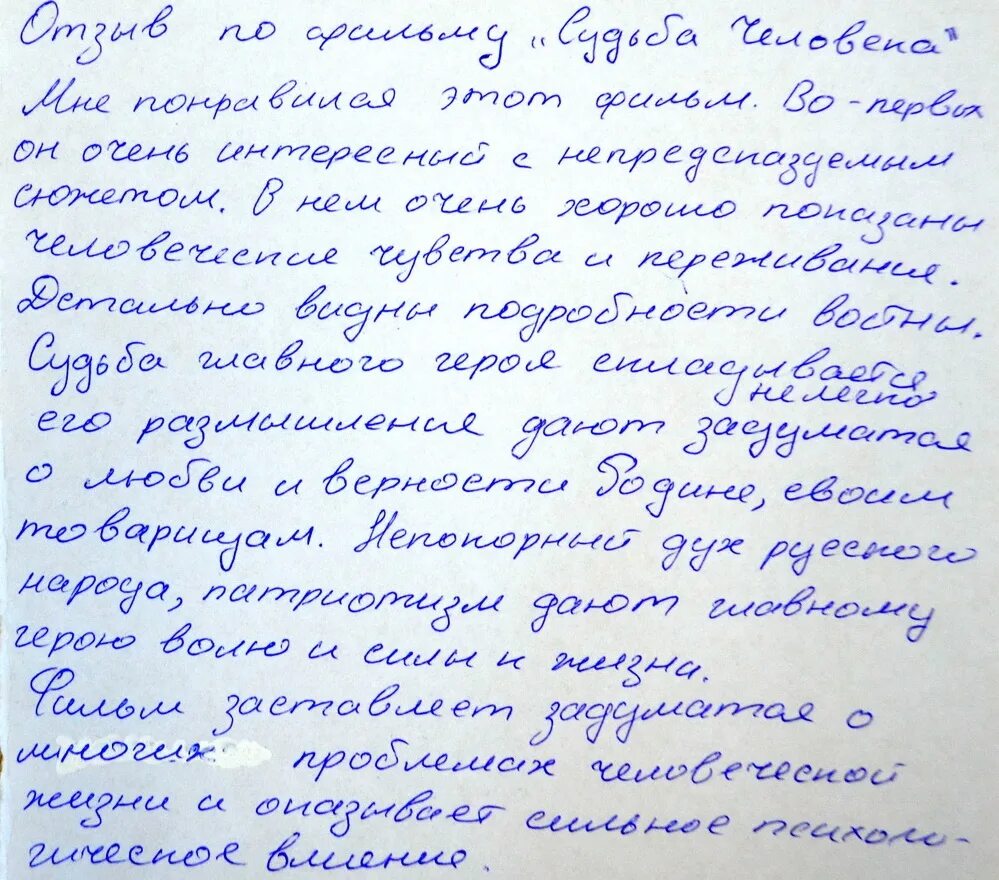 Отзыв по фильму „Судьба Человека"
Мне понравился этот фильм. Во-первых
он очень интересный с непредсказуемым
сюжетом. В нем очень хорошо показаны
человеческие чувства и переживания.
Детально видны подробности войны.
Судьба главного героя складывается
нелегко
его размышления дают задуматся
о любви и верности Родине, своим
товарищам. Непокорный дух русского
народа, патриотизм дают главному
герою волю и силы к жизни.
Фильм заставляет задуматся о
многих проблемах человеческой
жизни и оказывает сильное психоло-
гическое влияние.